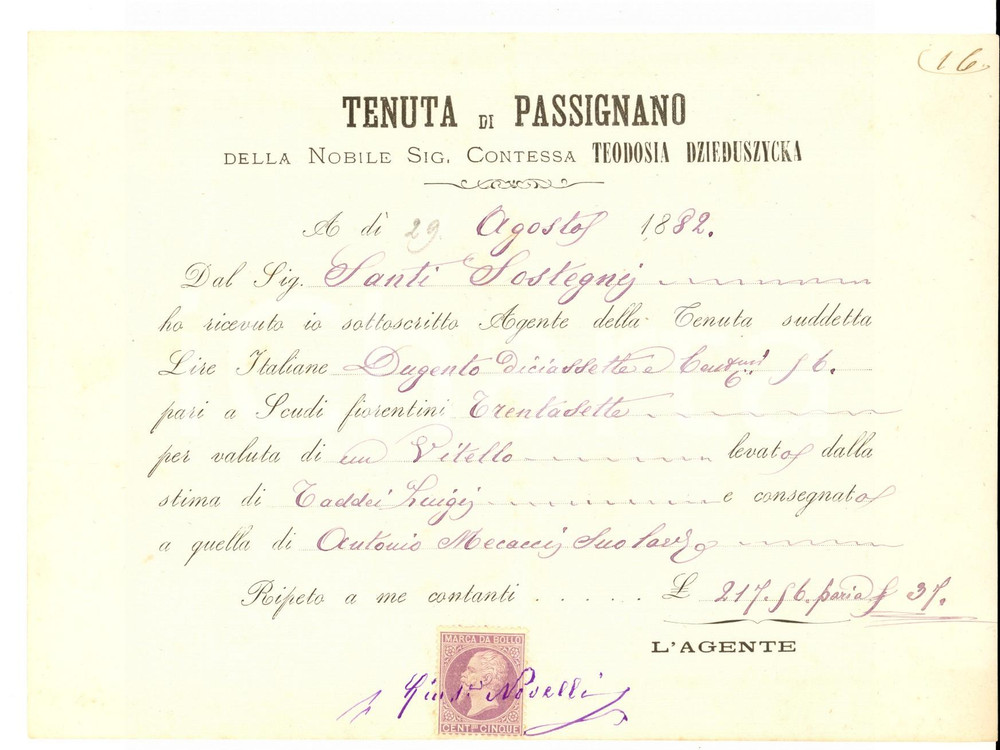 16.
TENUTA DI PASSIGNANO
DELLA NOBILE SIG. CONTESSA TEODOSIA DZIEDUSZYCKA
A dì 29 Agosto 1882.
Dal Sig. Santi Sostegni
ho ricevuto io sottoscritto Agente della Tenuta suddetta
Lire Italiane Dugento diciassette e 56.
pari a Scudi fiorentini Trentasette
per valuta di un Vitello levato dalla
stima di Taddei Luigi e consegnato
a quella di Antonio Mecacci Suo
Ripeto a me contanti ...... £ 217.56. paria 37.
L'AGENTE
MARCA DA BOLLO
Novelli
CENT.MI CINQUE